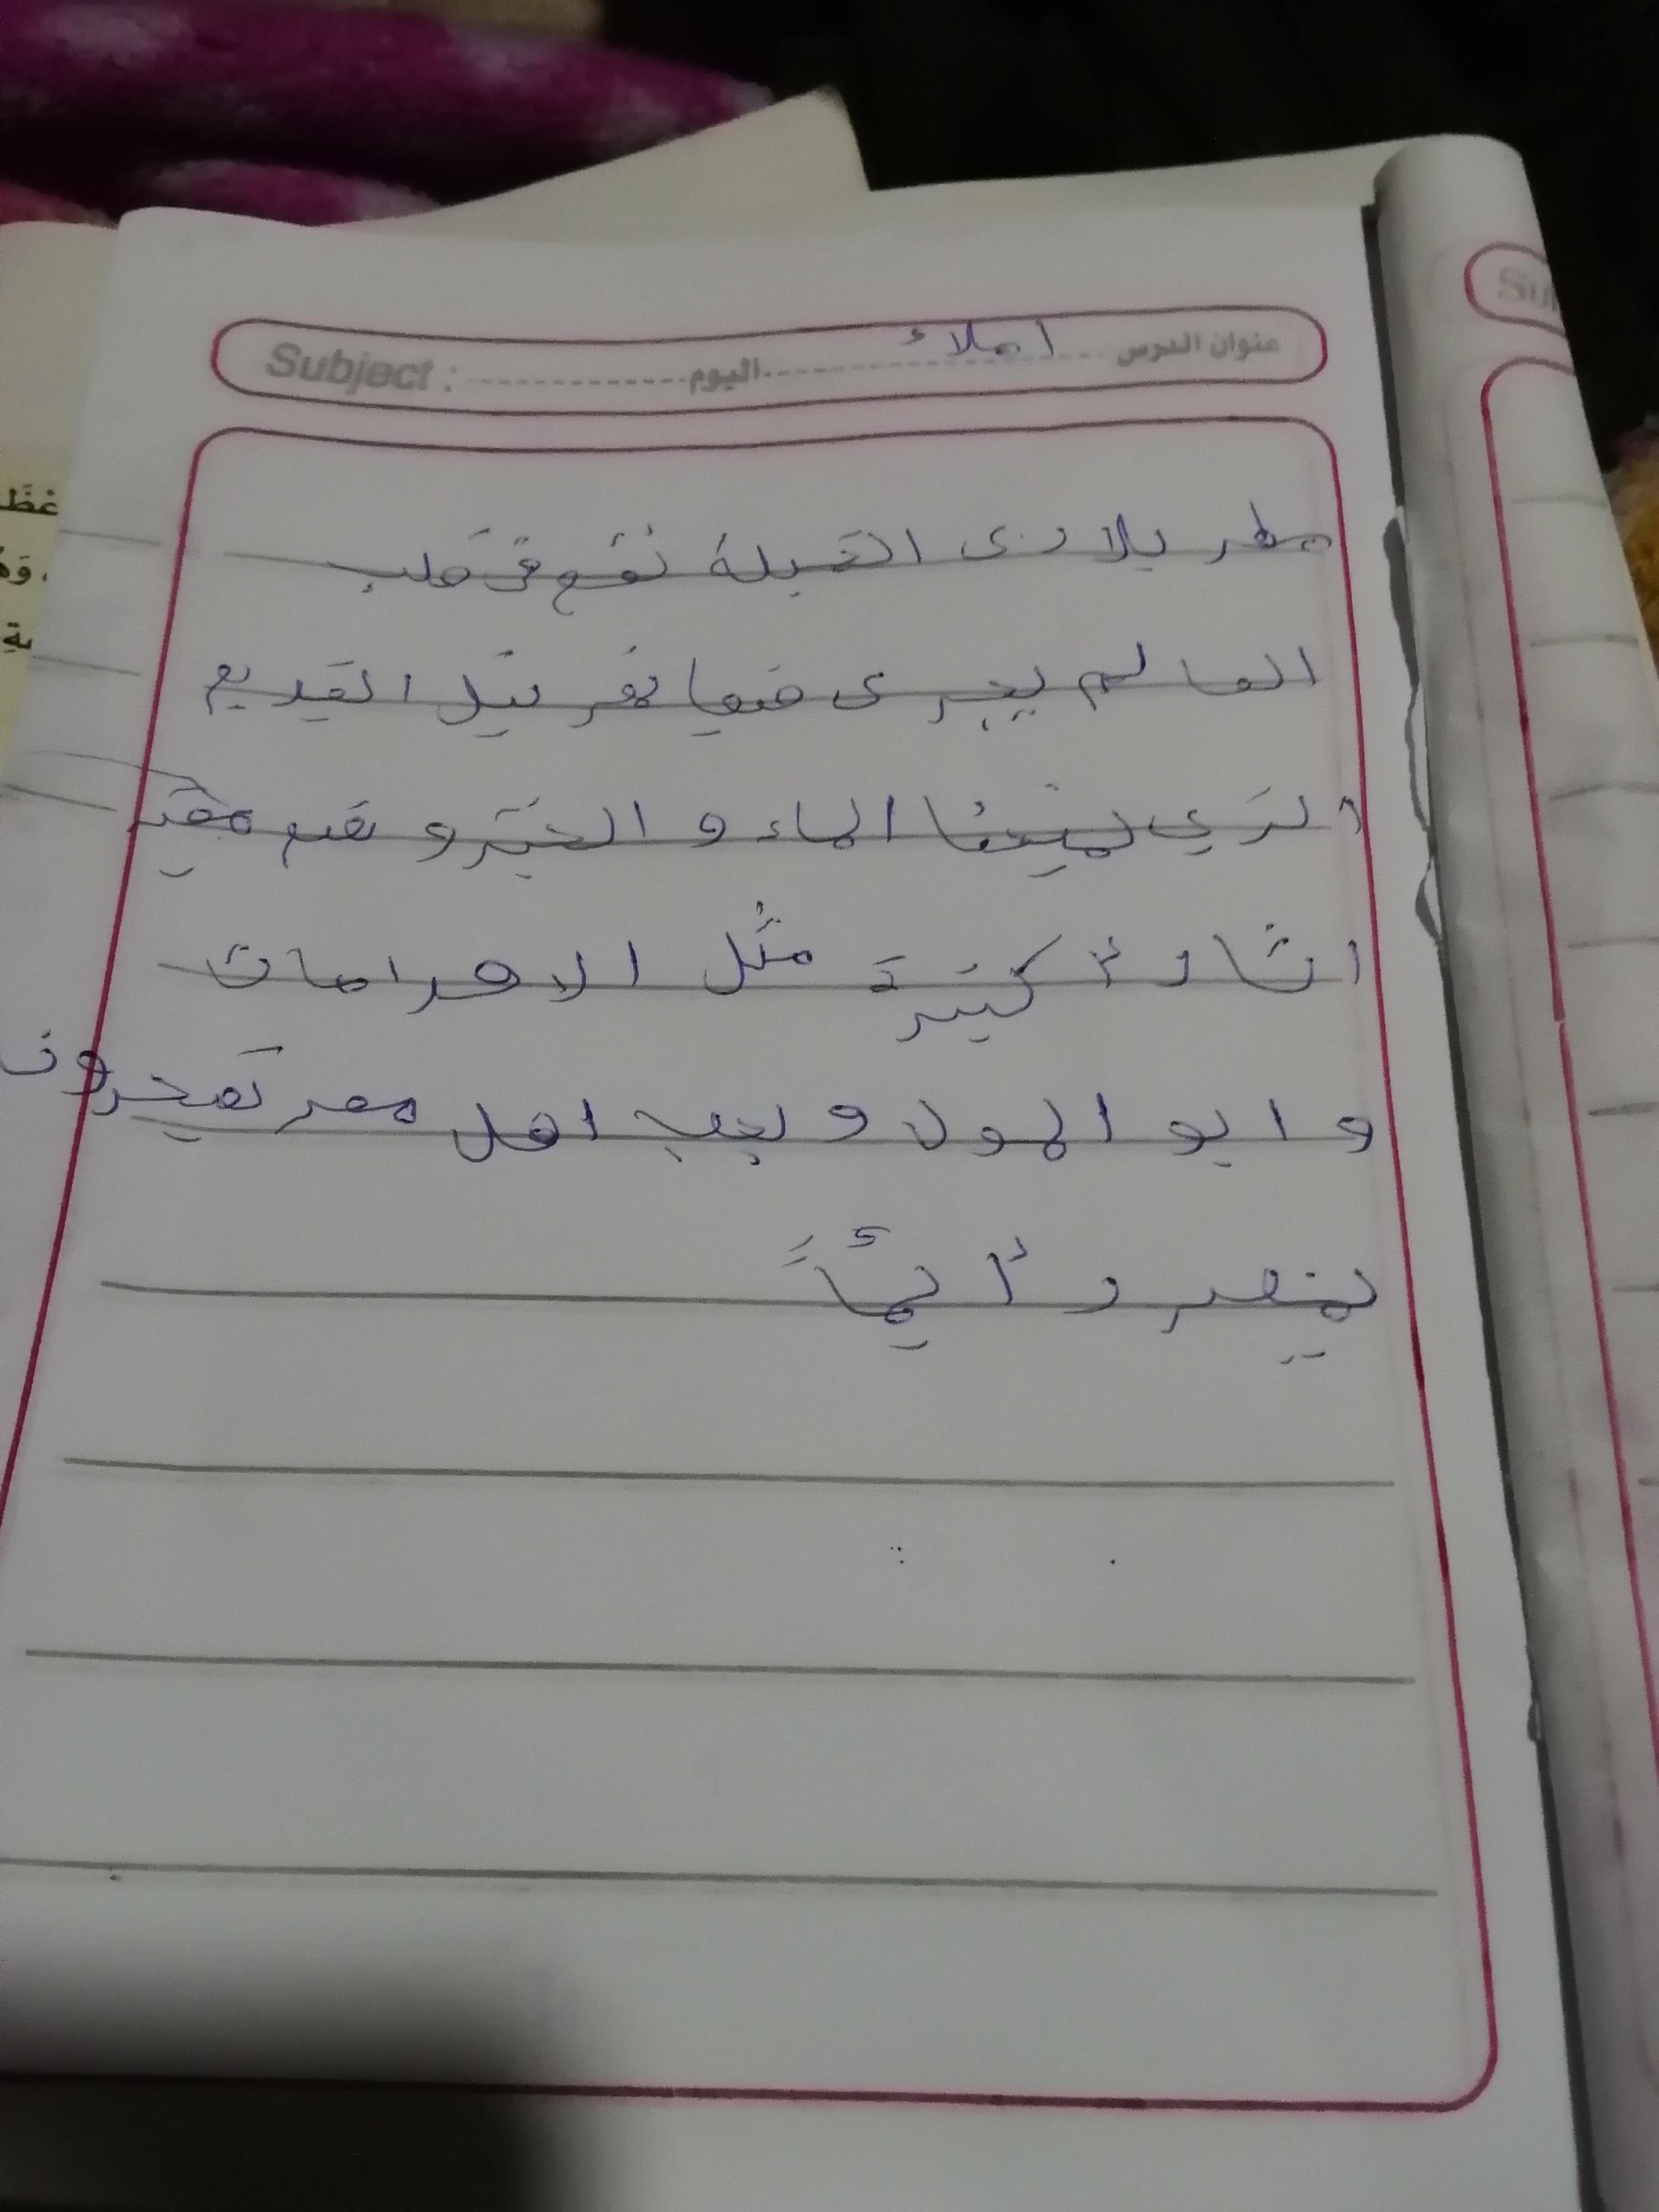 عنوان الدرس املاء اليوم Subject :
مطر بلادى الجميلة تقع فى قلب
العا لم يجرى فيها نهر نيل القديم
الذي يمنحنا الماء و الخير و تضم مصر
اثارا كبيرة مثل الاهرامات
و ابو الهول و يجب اهل مصر تفخرون
بمصر دأيماً